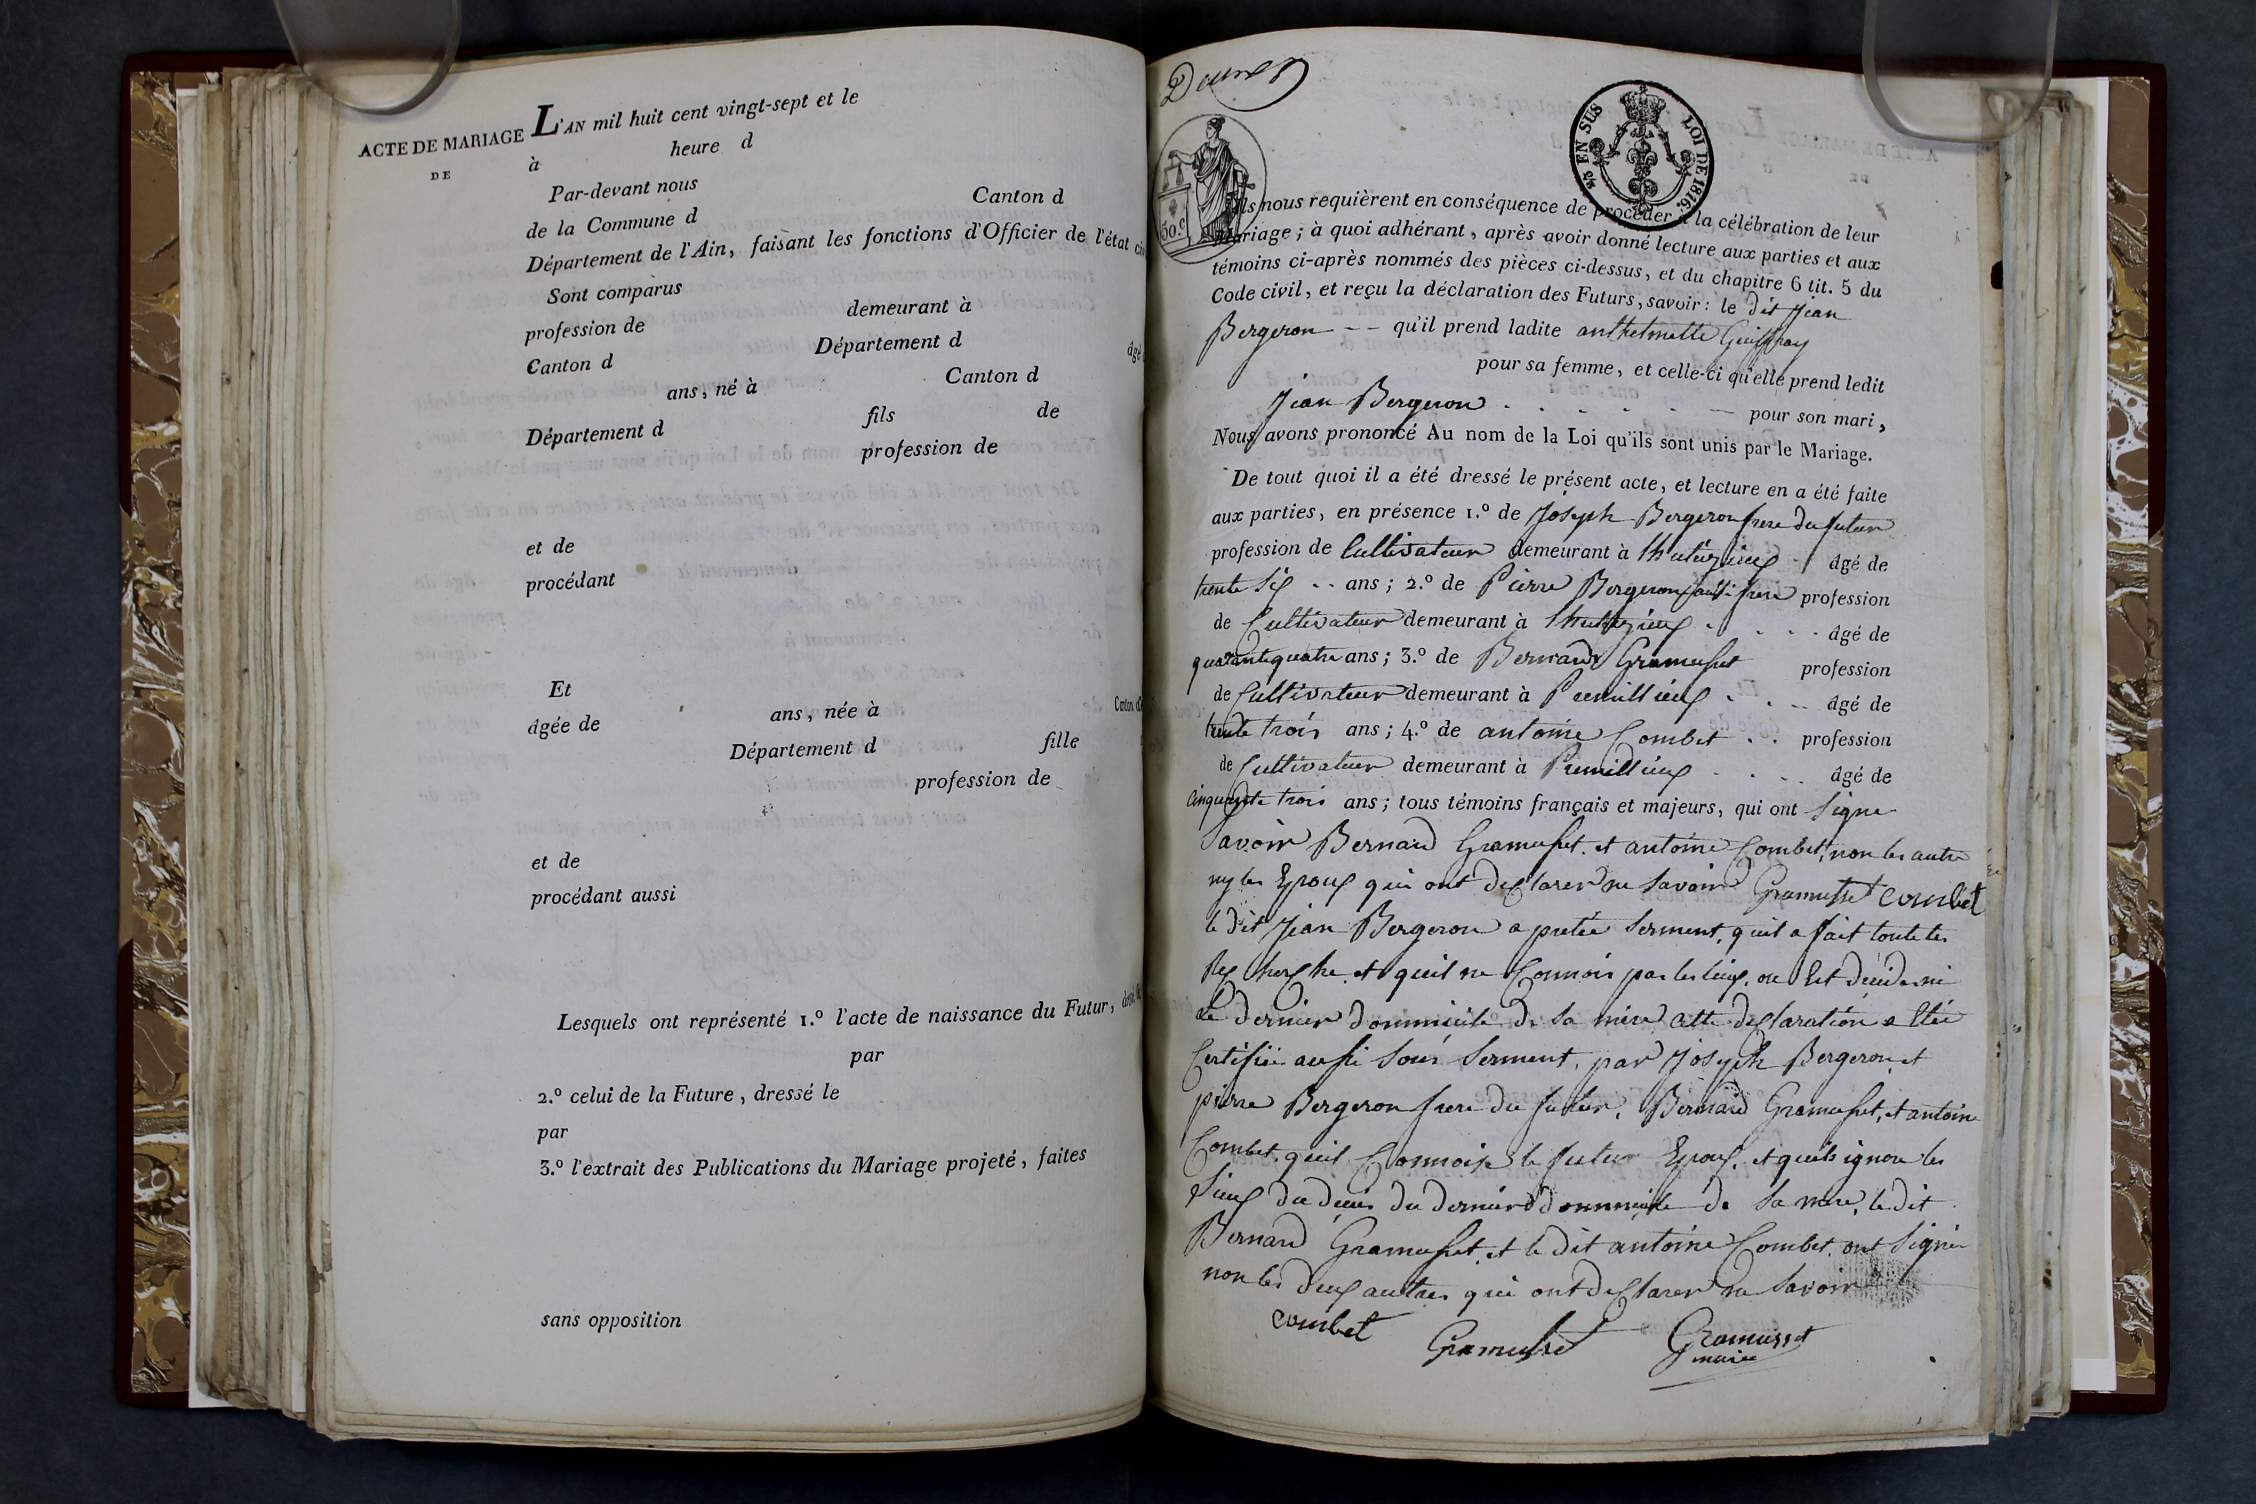 ACTE DE MARIAGE
DE
L'AN mil huit cent vingt-sept et le
à heure d
Par-devant nous
de la Commune d Canton d
Département de l'Ain, faisant les fonctions d'Officier de l'état
Sont comparus
profession de demeurant à
Canton d Département d âgé
ans, né à Canton d
Département d fils de
profession de
et de
procédant
Et
âgée de ans, née à Canton
Département d fille
profession de
et de
procédant aussi
Lesquels ont représenté 1.º l'acte de naissance du Futur,
par
2.º celui de la Future, dressé le
par
3.º l'extrait des Publications du Mariage projeté, faites
sans opposition
EN SUS LOI DE 1816.
50.c
Ils nous requièrent en conséquence de procéder à la célébration de leur
Mariage; à quoi adhérant, après avoir donné lecture aux parties et aux
témoins ci-après nommés des pièces ci-dessus, et du chapitre 6 tit. 5 du
Code civil, et reçu la déclaration des Futurs, savoir: le dit Jean
Bergeron -- qu'il prend ladite anthelmette Guiffray
pour sa femme, et celle-ci qu'elle prend ledit
Jean Bergeron pour son mari,
Nous avons prononcé Au nom de la Loi qu'ils sont unis par le Mariage.
De tout quoi il a été dressé le présent acte, et lecture en a été faite
aux parties, en présence 1.º de Joseph Bergeron frere du futur
profession de Cultivateur demeurant à thutézieux âgé de
trente six -- ans; 2.º de Pierre Bergeron aussi frere profession
de Cultivateur demeurant à âgé de
quarantequatre ans; 3.º de Bernard Gramusset profession
de Cultivateur demeurant à Premillieux âgé de
trente trois ans; 4.º de antoine Combet profession
de Cultivateur demeurant à Premillieux âgé de
Cinquante trois ans; tous témoins français et majeurs, qui ont Signe
Savoir Bernard Gramusset. et antoine Combet, non les autre
ny les Epoux qui ont desclarer ne Savoir Gramusset combet
le dit Jean Bergeron a pretée Serment, quil a fait toute les
Recherche et quil ne Connois pas les lieux, ou Est décidé ni
Le dernier dommicile de Sa mère cette desclaration a Etée
Certifiée aussi Sous Serment, par Joseph Bergeron, et
pierre Bergeron frere du futur, Bernard Gramusset, et antoine
Combet, quil Connoise le futur Epoux, et quils ignore les
Lieux du déces du dernier dommicile de Sa mere, le dit
Bernard Gramusset, et le dit antoine Combet, ont Signée
non les deux autres qui ont desclarer ne Savoir
combet Gramusset Gramusset
maire